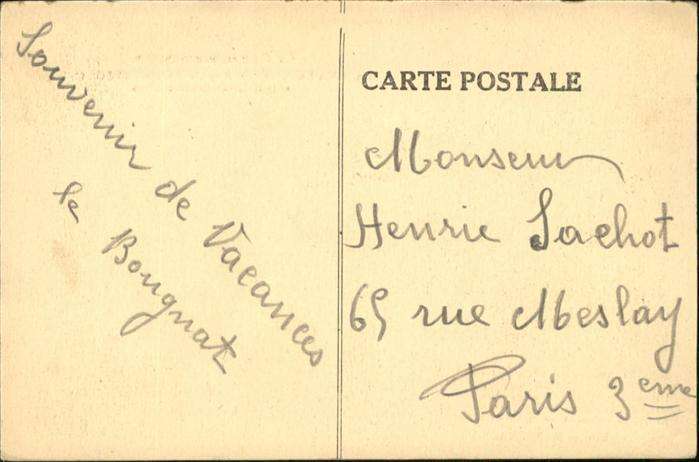 Souvenir de Vacances
le Bougnat
CARTE POSTALE
Monsieur
Henrie Sachot
65 rue Meslay
Paris 3eme